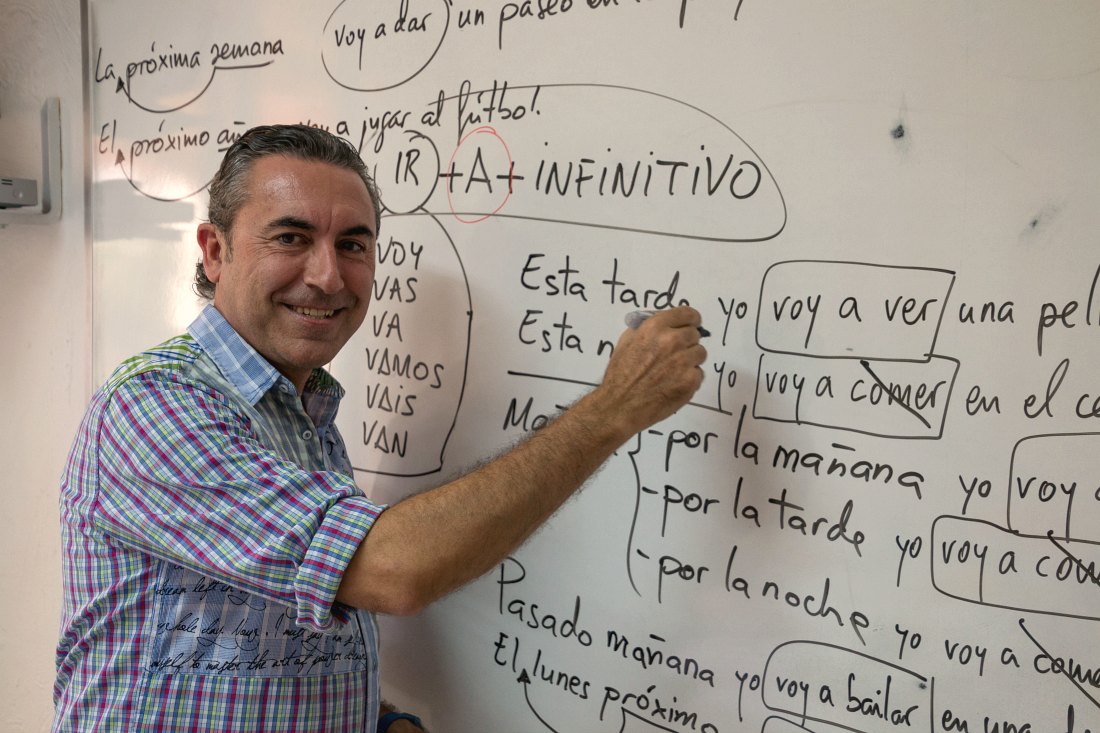 La próxima semana voy a dar un paseo
El próximo voy a jugar al fútbol!
IR + A + iNFiNiTiVO
VOY
VAS
VA
VAMOS
VAIS
VAN
Esta tarde yo voy a ver una
Esta yo voy a comer en el
- por la mañana yo voy
- por la tarde yo voy a
- por la noche yo voy a
Pasado mañana yo voy a bailar en una
El lunes próximo